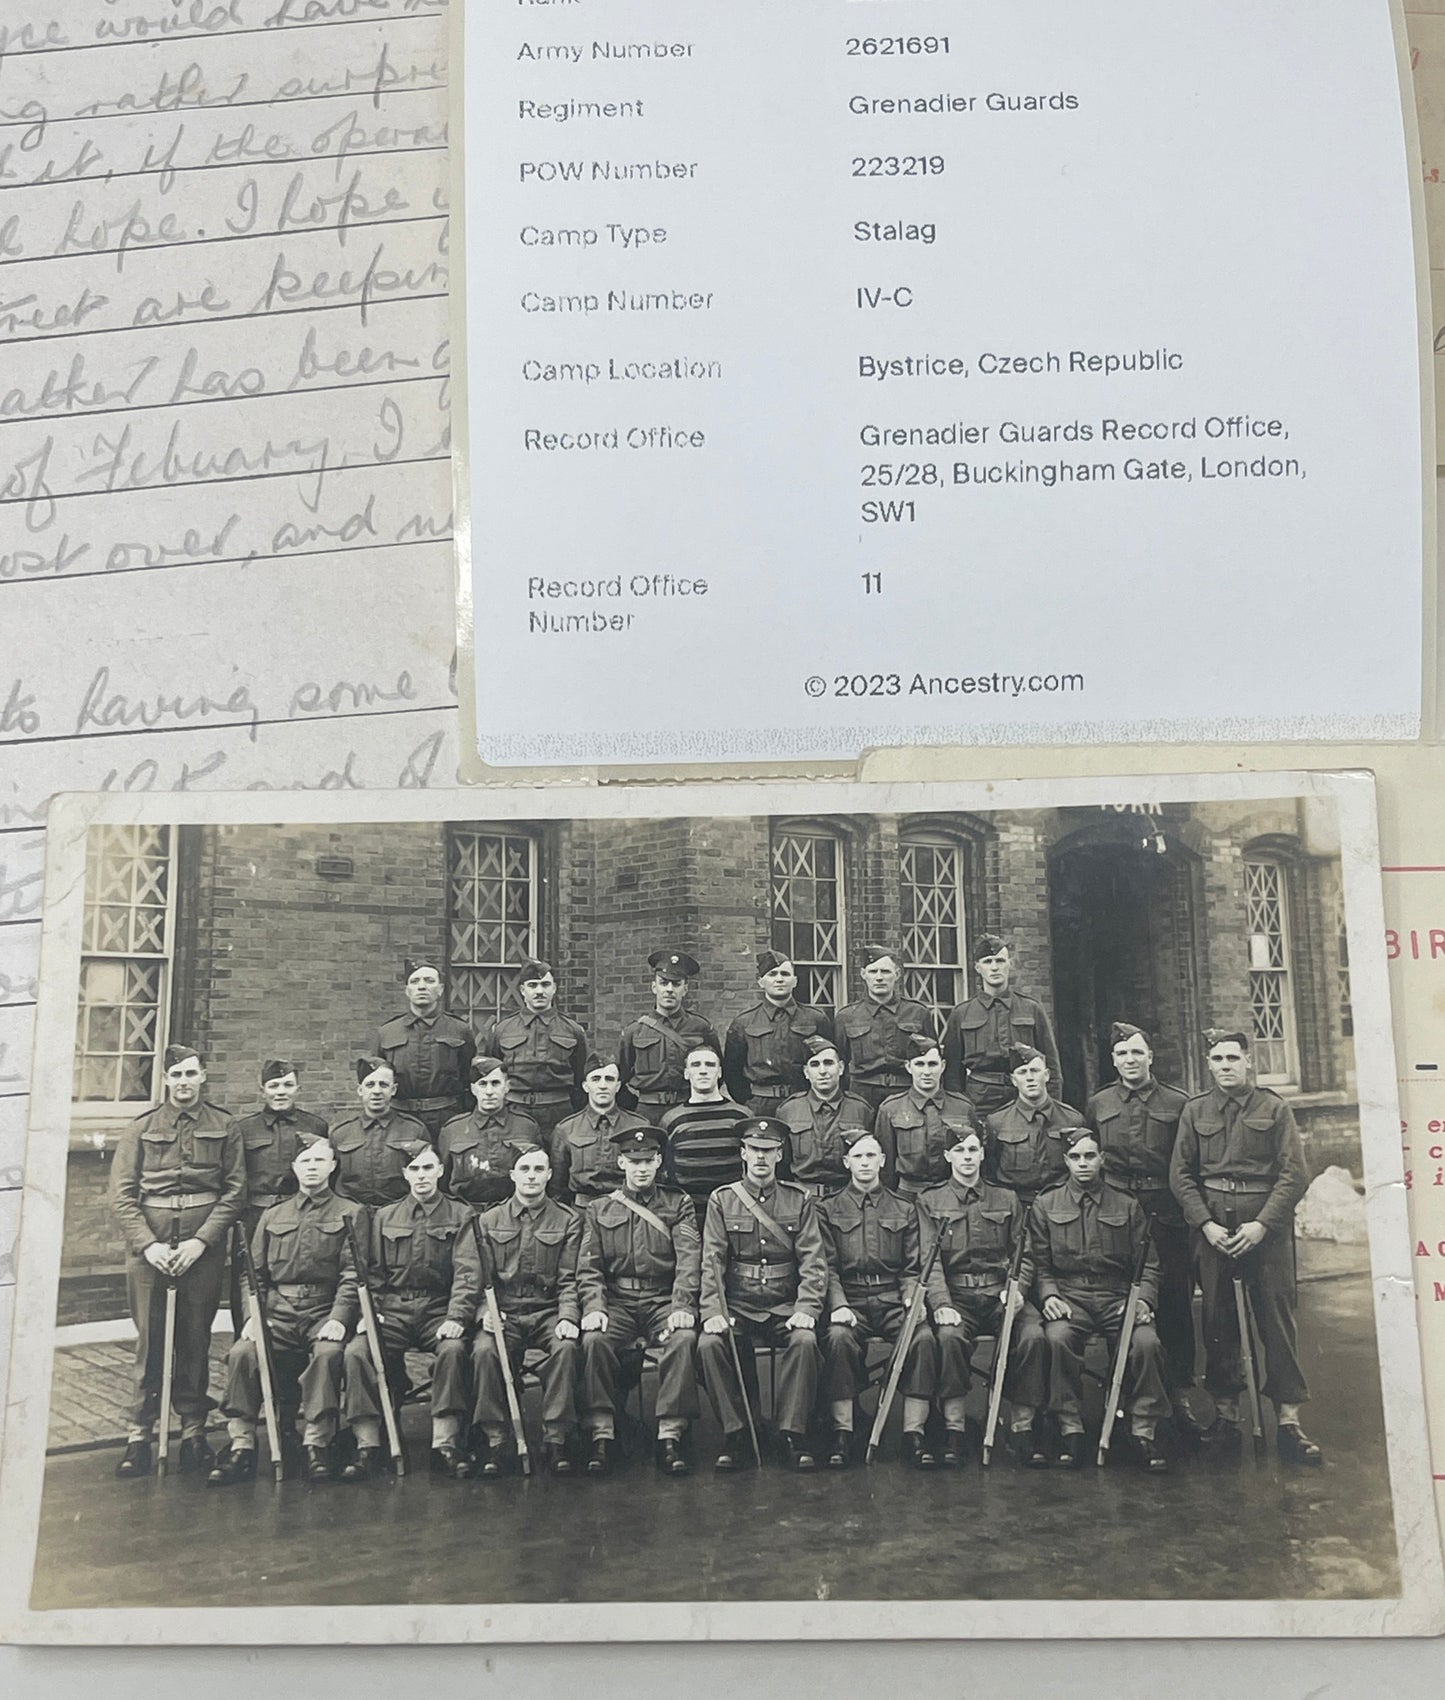 would have
rather surpri
it, if the opera
hope. I hope
are keepin
has been
of Febuary, I
over, and
to having some
and of
Army Number 2621691
Regiment Grenadier Guards
POW Number 223219
Camp Type Stalag
Camp Number IV-C
Camp Location Bystrice, Czech Republic
Record Office Grenadier Guards Record Office,
25/28, Buckingham Gate, London,
SW1
Record Office 11
Number
© 2023 Ancestry.com
YORK
BIR